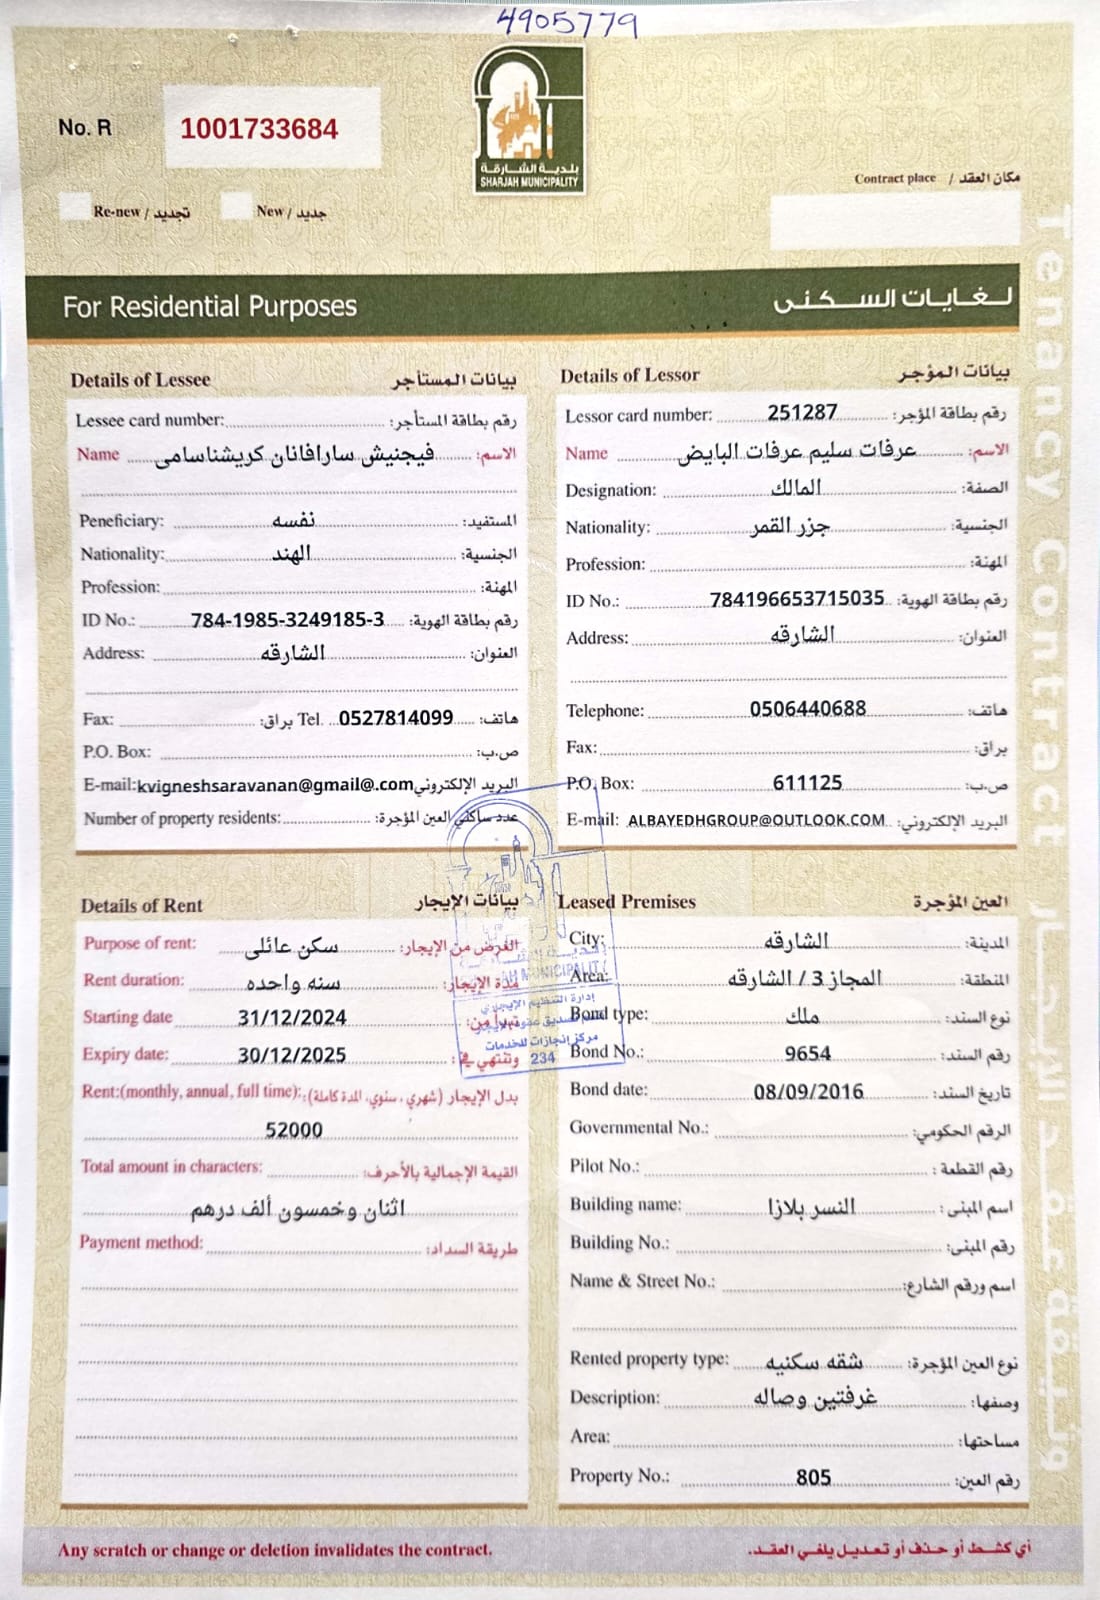 4905779
No. R 1001733684
بلدية الشارقة
SHARJAH MUNICIPALITY
Contract place / مكان العقد
Re-new / تجديد New / جديد
For Residential Purposes لغايات السكنى
Tenancy Contract وثيقة عقد الإيجار
Details of Lessee بيانات المستأجر
Lessee card number: رقم بطاقة المستأجر:
Name فيجنيش سارافانان كريشناسامى الاسم:
Peneficiary: نفسه المستفيد:
Nationality: الهند الجنسية:
Profession: المهنة:
ID No.: 784-1985-3249185-3 رقم بطاقة الهوية:
Address: الشارقه العنوان:
Fax: براق: Tel. 0527814099 هاتف:
P.O. Box: ص.ب:
E-mail:kvigneshsaravanan@gmail@.com البريد الإلكتروني
Number of property residents: عدد ساكني العين المؤجرة:
Details of Lessor بيانات المؤجر
Lessor card number: 251287 رقم بطاقة المؤجر:
Name عرفات سليم عرفات البايض الاسم:
Designation: المالك الصفة:
Nationality: جزر القمر الجنسية:
Profession: المهنة:
ID No.: 784196653715035 رقم بطاقة الهوية:
Address: الشارقه العنوان:
Telephone: 0506440688 هاتف:
Fax: براق:
P.O. Box: 611125 ص.ب:
E-mail: ALBAYEDHGROUP@OUTLOOK.COM البريد الإلكتروني:
Details of Rent بيانات الإيجار
Purpose of rent: سكن عائلى الغرض من الإيجار:
Rent duration: سنه واحده مدة الإيجار:
Starting date 31/12/2024 تبدأ من:
Expiry date: 30/12/2025 وتنتهي في:
Rent:(monthly, annual, full time): بدل الإيجار (شهري، سنوي، المدة كاملة):
52000
Total amount in characters: القيمة الإجمالية بالأحرف:
اثنان وخمسون ألف درهم
Payment method: طريقة السداد:
إدارة التنظيم الإيجاري
مركز إنجازات للخدمات
234
Leased Premises العين المؤجرة
City: الشارقه المدينة:
Area: المجاز 3 / الشارقه المنطقة:
Bond type: ملك نوع السند:
Bond No.: 9654 رقم السند:
Bond date: 08/09/2016 تاريخ السند:
Governmental No.: الرقم الحكومي:
Pilot No.: رقم القطعة:
Building name: النسر بلازا اسم المبنى:
Building No.: رقم المبنى:
Name & Street No.: اسم ورقم الشارع:
Rented property type: شقه سكنيه نوع العين المؤجرة:
Description: غرفتين وصاله وصفها:
Area: مساحتها:
Property No.: 805 رقم العين:
Any scratch or change or deletion invalidates the contract. أي كشط أو حذف أو تعديل يلغي العقد.